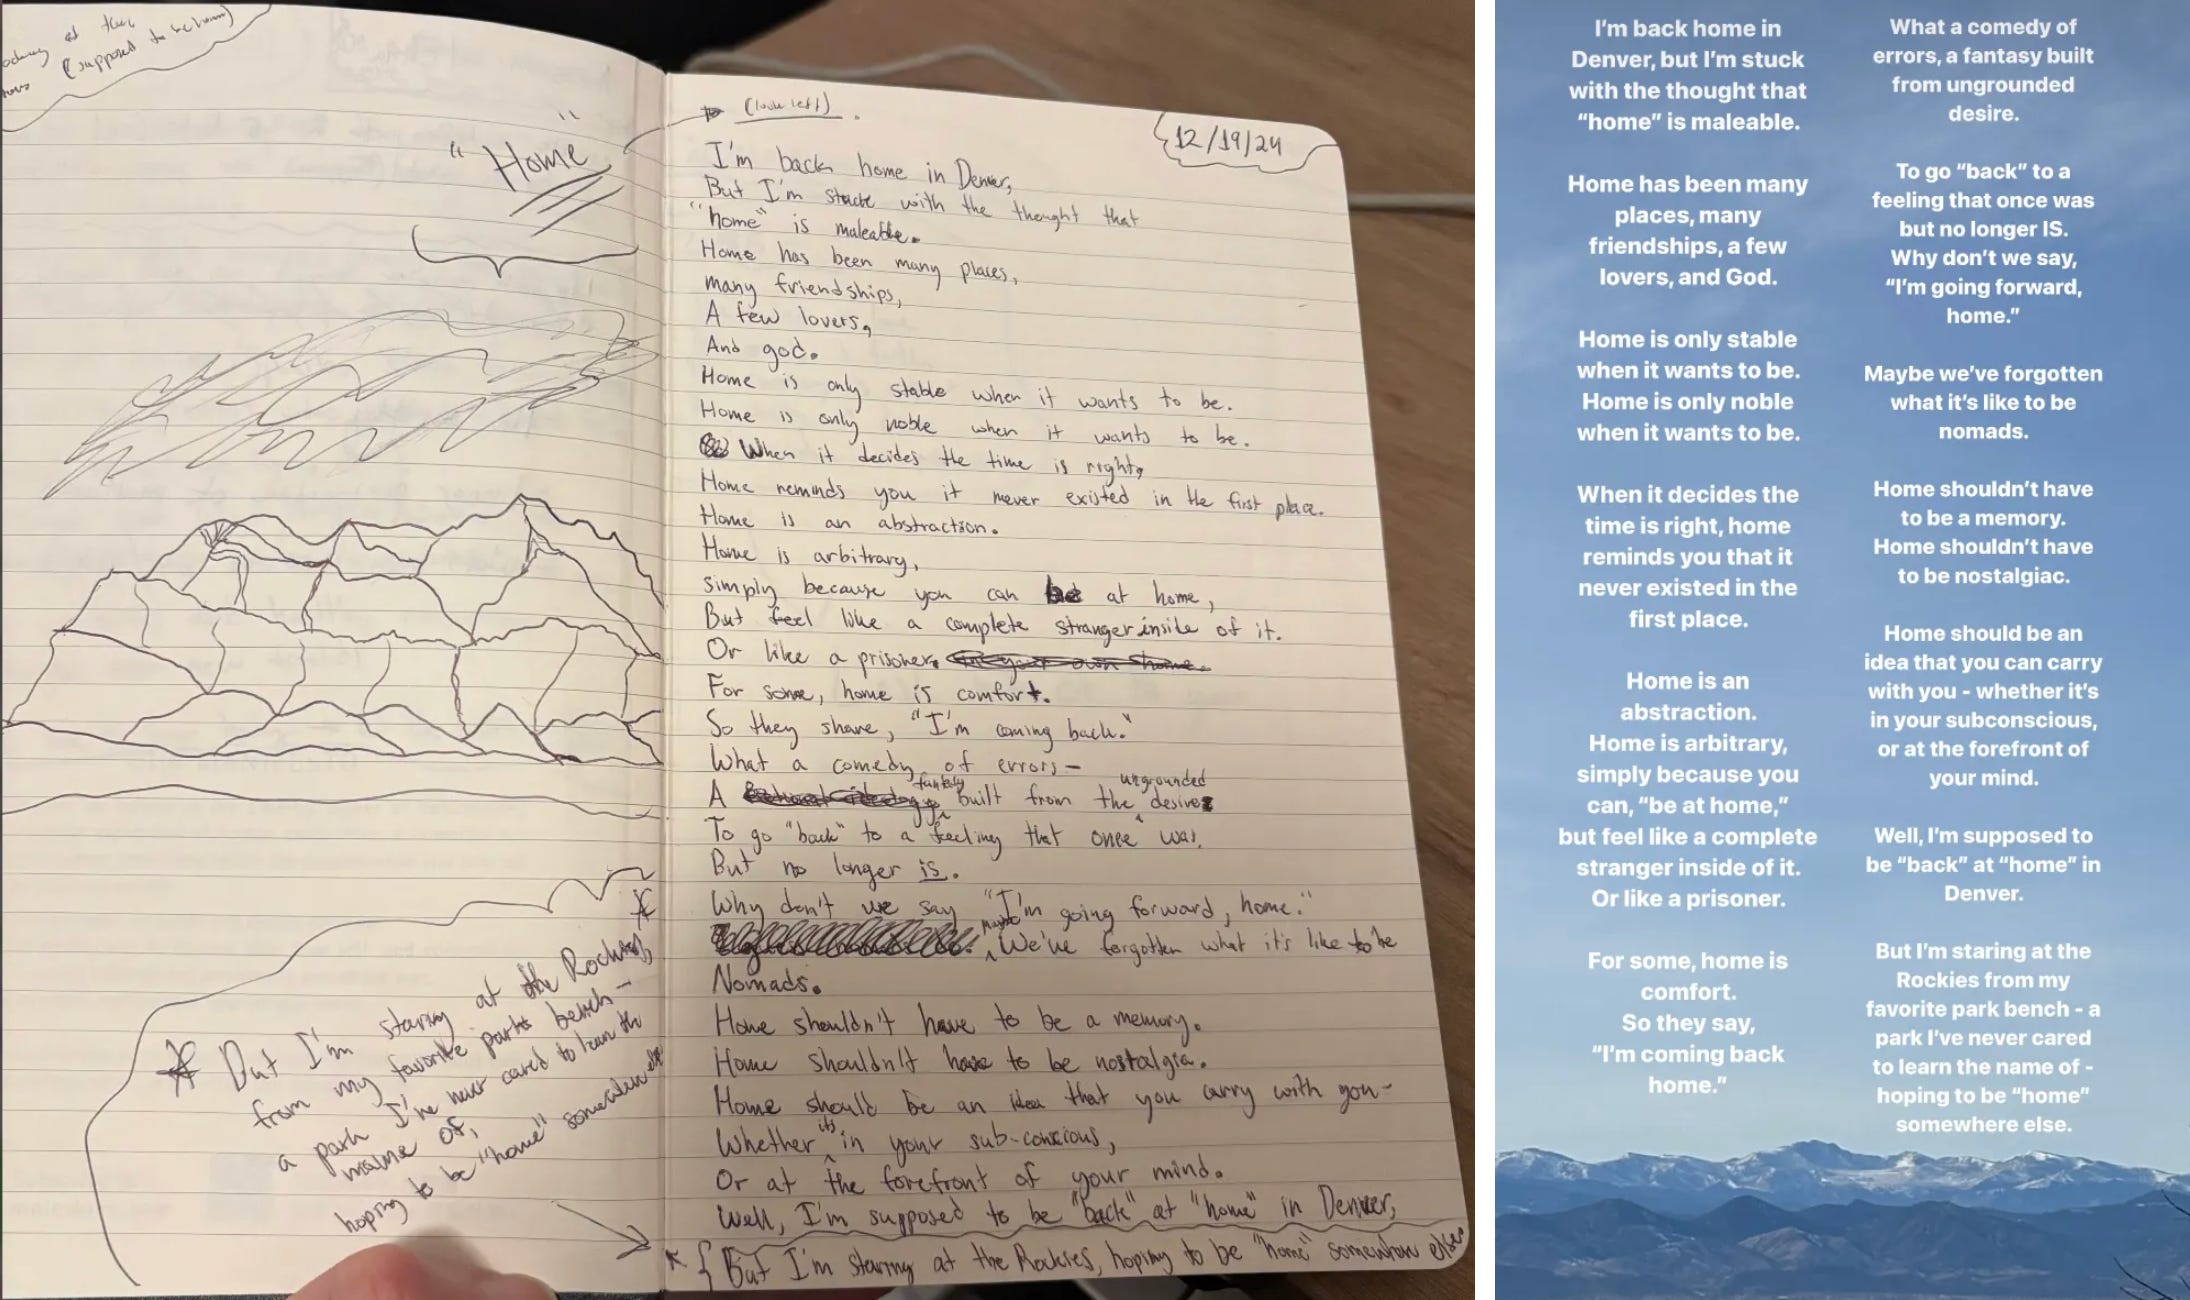 at their
(supposed to be home)
"Home"
(look left).
12/19/24
I'm back home in Denver,
But I'm stuck with the thought that
"home" is maleable.
Home has been many places,
many friendships,
A few lovers,
And god.
Home is only stable when it wants to be.
Home is only noble when it wants to be.
When it decides the time is right,
Home reminds you it never existed in the first place.
Home is an abstraction.
Home is arbitrary,
simply because you can be at home,
But feel like a complete stranger inside of it.
Or like a prisoner. in your own home.
For some, home is comfort.
So they share, "I'm coming back."
What a comedy of errors—
fantasy ungrounded
A built from the desire
To go "back" to a feeling that once was,
But no longer is.
Why don't we say "I'm going forward, home."
Maybe
We've forgotten what it's like to be
Nomads.
Home shouldn't have to be a memory.
Home shouldn't have to be nostalgia.
Home should be an idea that you carry with you-
it's
Whether in your sub-conscious,
Or at the forefront of your mind.
Well, I'm supposed to be "back" at "home" in Denver,
{ But I'm staring at the Rockies, hoping to be "home" somewhere else
But I'm staring at the Rockies
from my favorite parks bench -
a park I've never cared to learn the
name of,
hoping to be "home" somewhere else
I'm back home in
Denver, but I'm stuck
with the thought that
“home” is maleable.
Home has been many
places, many
friendships, a few
lovers, and God.
Home is only stable
when it wants to be.
Home is only noble
when it wants to be.
When it decides the
time is right, home
reminds you that it
never existed in the
first place.
Home is an
abstraction.
Home is arbitrary,
simply because you
can, “be at home,”
but feel like a complete
stranger inside of it.
Or like a prisoner.
For some, home is
comfort.
So they say,
“I'm coming back
home.”
What a comedy of
errors, a fantasy built
from ungrounded
desire.
To go “back” to a
feeling that once was
but no longer IS.
Why don't we say,
“I'm going forward,
home.”
Maybe we've forgotten
what it's like to be
nomads.
Home shouldn't have
to be a memory.
Home shouldn't have
to be nostalgiac.
Home should be an
idea that you can carry
with you - whether it's
in your subconscious,
or at the forefront of
your mind.
Well, I'm supposed to
be “back” at “home” in
Denver.
But I'm staring at the
Rockies from my
favorite park bench - a
park I've never cared
to learn the name of -
hoping to be “home”
somewhere else.